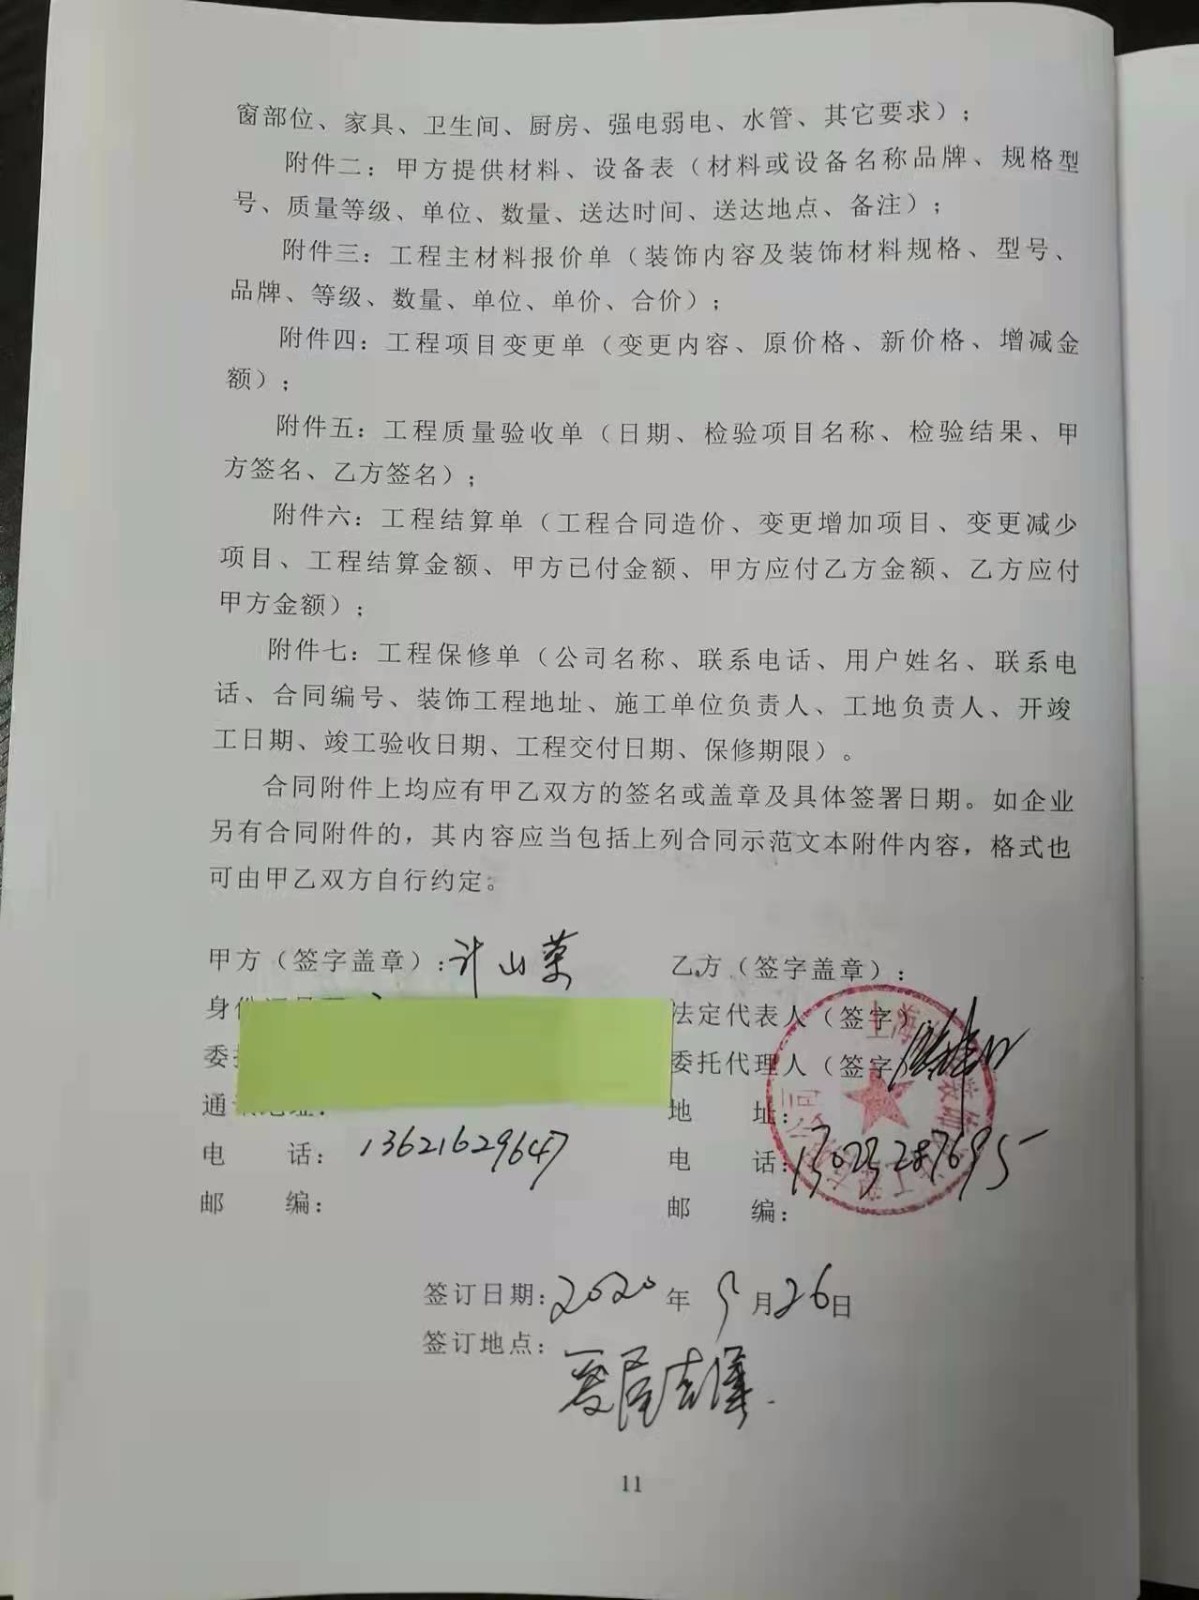 窗部位、家具、卫生间、厨房、强电弱电、水管、其它要求）；
附件二：甲方提供材料、设备表（材料或设备名称品牌、规格型
号、质量等级、单位、数量、送达时间、送达地点、备注）；
附件三：工程主材料报价单（装饰内容及装饰材料规格、型号、
品牌、等级、数量、单位、单价、合价）；
附件四：工程项目变更单（变更内容、原价格、新价格、增减金
额）；
附件五：工程质量验收单（日期、检验项目名称、检验结果、甲
方签名、乙方签名）；
附件六：工程结算单（工程合同造价、变更增加项目、变更减少
项目、工程结算金额、甲方已付金额、甲方应付乙方金额、乙方应付
甲方金额）；
附件七：工程保修单（公司名称、联系电话、用户姓名、联系电
话、合同编号、装饰工程地址、施工单位负责人、工地负责人、开竣
工日期、竣工验收日期、工程交付日期、保修期限）。
合同附件上均应有甲乙双方的签名或盖章及具体签署日期。如企业
另有合同附件的，其内容应当包括上列合同示范文本附件内容，格式也
可由甲乙双方自行约定。
甲方（签字盖章）：计山荣
身
委
通
电 话：13621629647
邮 编：
乙方（签字盖章）：
法定代表人（签字）
委托代理人（签字
地 址：
电 话：
邮 编：
上海
装饰
公司
签订日期：2020年 5月26日
签订地点：
11